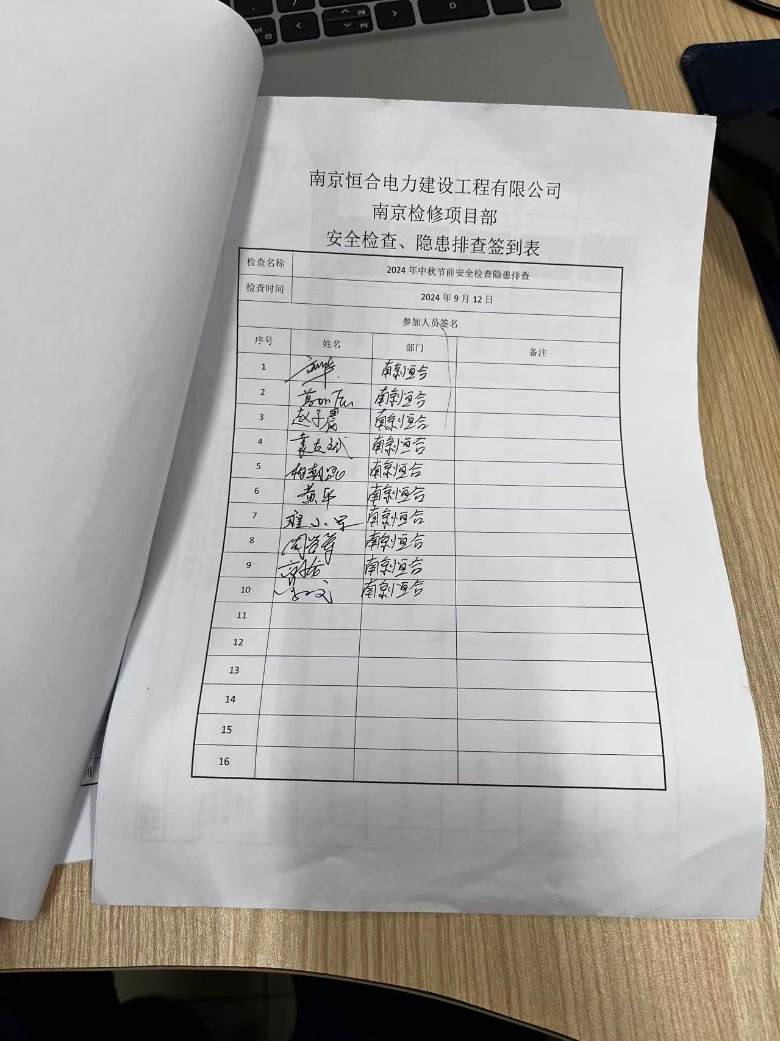 南京恒合电力建设工程有限公司
南京检修项目部
安全检查、隐患排查签到表
检查名称 2024年中秋节前安全检查隐患排查
检查时间 2024年9月12日
参加人员签名
序号 姓名 部门 备注
1 南京恒合
2 南京恒合
3 赵子震 南京恒合
4 袁友斌 南京恒合
5 南京恒合
6 黄华 南京恒合
7 程小军 南京恒合
8 南京恒合
9 南京恒合
10 南京恒合
11
12
13
14
15
16